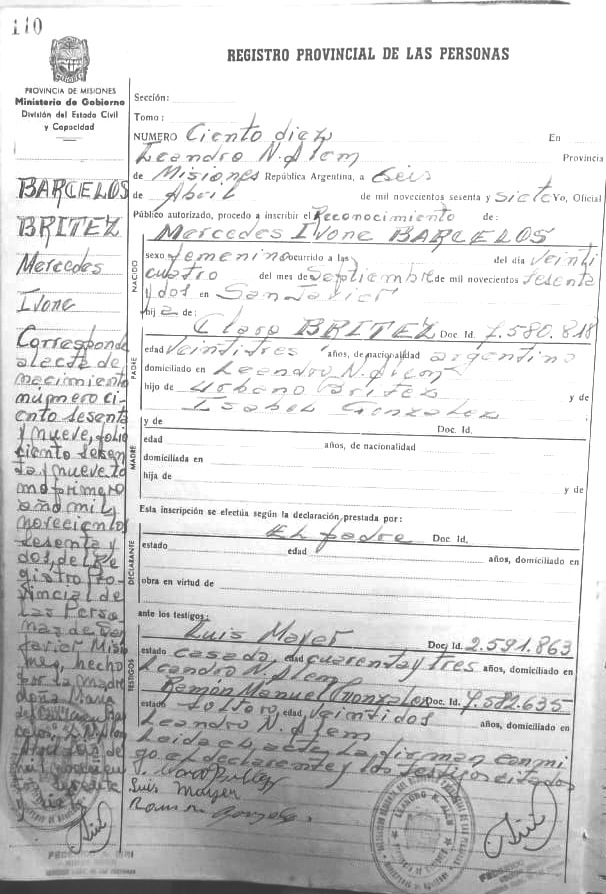 110
REGISTRO PROVINCIAL DE LAS PERSONAS
PROVINCIA DE MISIONES
Ministerio de Gobierno
División del Estado Civil
y Capacidad
BARCELOS
BRITEZ
Mercedes
Ivone
Corresponde
al acta de
nacimiento
número ci-
ento sesenta
y nueve, folio
ciento sesen
ta y nueve to
mo primero
año mil
novecientos
sesenta y
dos, del Re
gistro Pro-
vincial de
Las Perso
nas de San
Javier Misio
nes, hecho
por la madre
doña María
Sección:
Tomo:
NUMERO Ciento diez En
Leandro N. Alem Provincia
de Misiones República Argentina, a Seis
de Abril de mil novecientos sesenta y siete Yo, Oficial
Público autorizado, procedo a inscribir el Reconocimiento de:
Mercedes Ivone BARCELOS
NACIDO
sexo femenino ocurrido a las del día veinti
cuatro del mes de Septiembre de mil novecientos sesenta
y dos en San Javier
hija de:
PADRE
Claro BRITEZ Doc. Id. 7.580.818
edad Veintitres años, de nacionalidad argentino
domiciliado en Leandro N. Alem
hijo de Urbano Britez y de
Isabel Gonzalez
MADRE
y de Doc. Id.
edad años, de nacionalidad
domiciliada en
hija de y de
Esta inscripción se efectúa según la declaración prestada por:
DECLARANTE
El padre Doc. Id.
estado edad años, domiciliado en
obra en virtud de
ante los testigos:
TESTIGOS
Luis Mayer Doc. Id. 2.591.863
estado casado, edad cuarenta y tres años, domiciliado en
Leandro N. Alem
Ramón Manuel Gonzalez Doc. Id. 7.582.635
estado soltero, edad, veintidos años, domiciliado en
Leandro N. Alem
Leida el acta La firman conmi
go el declarante y los testigos citados
Luis Mayer
Ramon Gonzalez